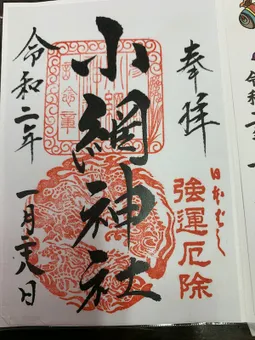 奉拝
日本ばし
強運厄除
小網神社
令和二年
一月二十八日